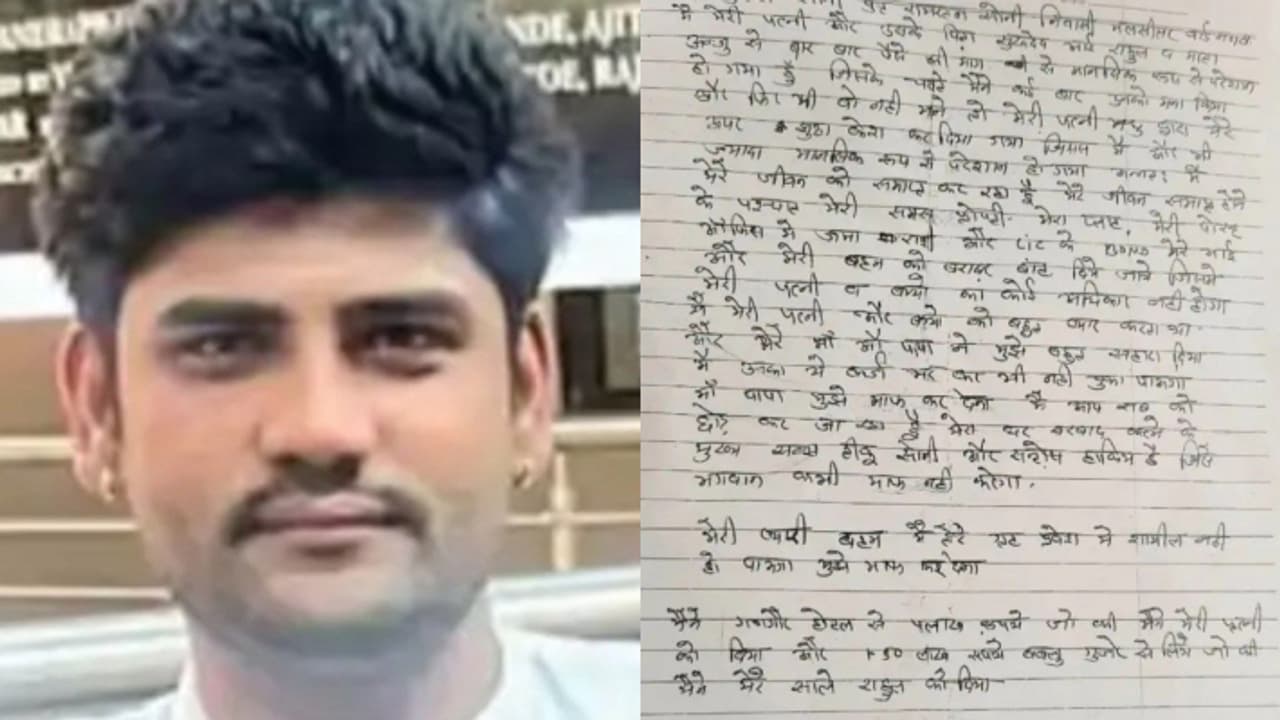 NDE, AJIT
POE, RAJ
मैं मेरी पत्नी और उसके पिता सुखदेव भाई राहुल व माता
अन्जु से बार बार पैसे की मांग से मानसिक रूप से परेशान
हो गया हूँ जिसके चलते मैंने कई बार उनको मना किया
और फिर भी वो नही माने तो मेरी पत्नी मधु द्वारा मेरे
ऊपर झुठा केस कर दिया गया जिससे मैं और भी
ज्यादा मानसिक रूप से परेशान हो गया मैं
मेरे जीवन को समाप्त कर रहा हूँ मेरे जीवन समाप्त होने
के पश्चात मेरी समस्त प्रोपर्टी मेरा प्लाट, मेरी पोस्ट
ऑफिस मे जमा राशी और मेरे भाई
और मेरी बहन को बराबर बांट दिये जावे जिसमे
मेरी पत्नी व बच्चो का कोई अधिकार नही होगा
मैं मेरी पत्नी और बच्चो को बहुत प्यार करता था
और मेरे माँ और पापा ने मुझे बहुत सहारा दिया
मैं उनका ये कर्ज मर कर भी नही चुका पाऊंगा
माँ पापा मुझे माफ कर देना मैं आप सब को
छोड़ कर जा रहा हूँ मेरा घर बरबाद करने के
मुख्य सोनी और संतोष हाकिम है जिसे
भगवान कभी माफ नही करेगा.
मेरी प्यारी बहन मैं तेरे गृह प्रवेश मे शामील नही
हो पाऊगा मुझे माफ कर देना
मैंने गणगौर होटल से लाख रूपये जो थे मैंने मेरी पत्नी
को दिया और 1.50 लाख रूपये बबलु गुर्जर से लिये जो की
मैंने मेरे साले राहुल को दिया